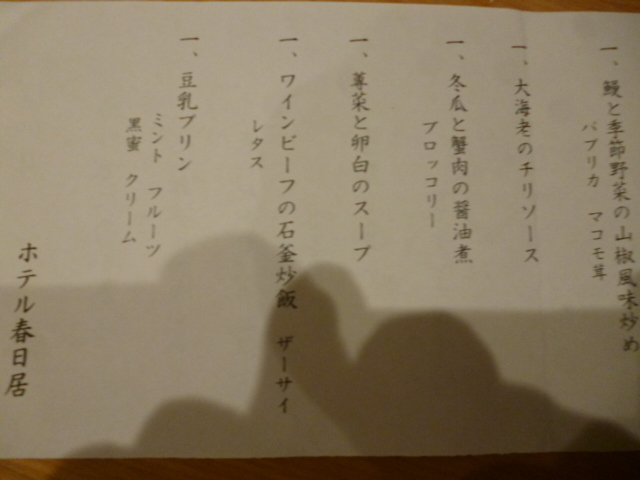 一、鰻と季節野菜の山椒風味炒め
パプリカ マコモ茸
一、大海老のチリソース
一、冬瓜と蟹肉の醤油煮
ブロッコリー
一、蓴菜と卵白のスープ
一、ワインビーフの石釜炒飯 ザーサイ
レタス
一、豆乳プリン
ミント フルーツ
黒蜜 クリーム
ホテル春日居